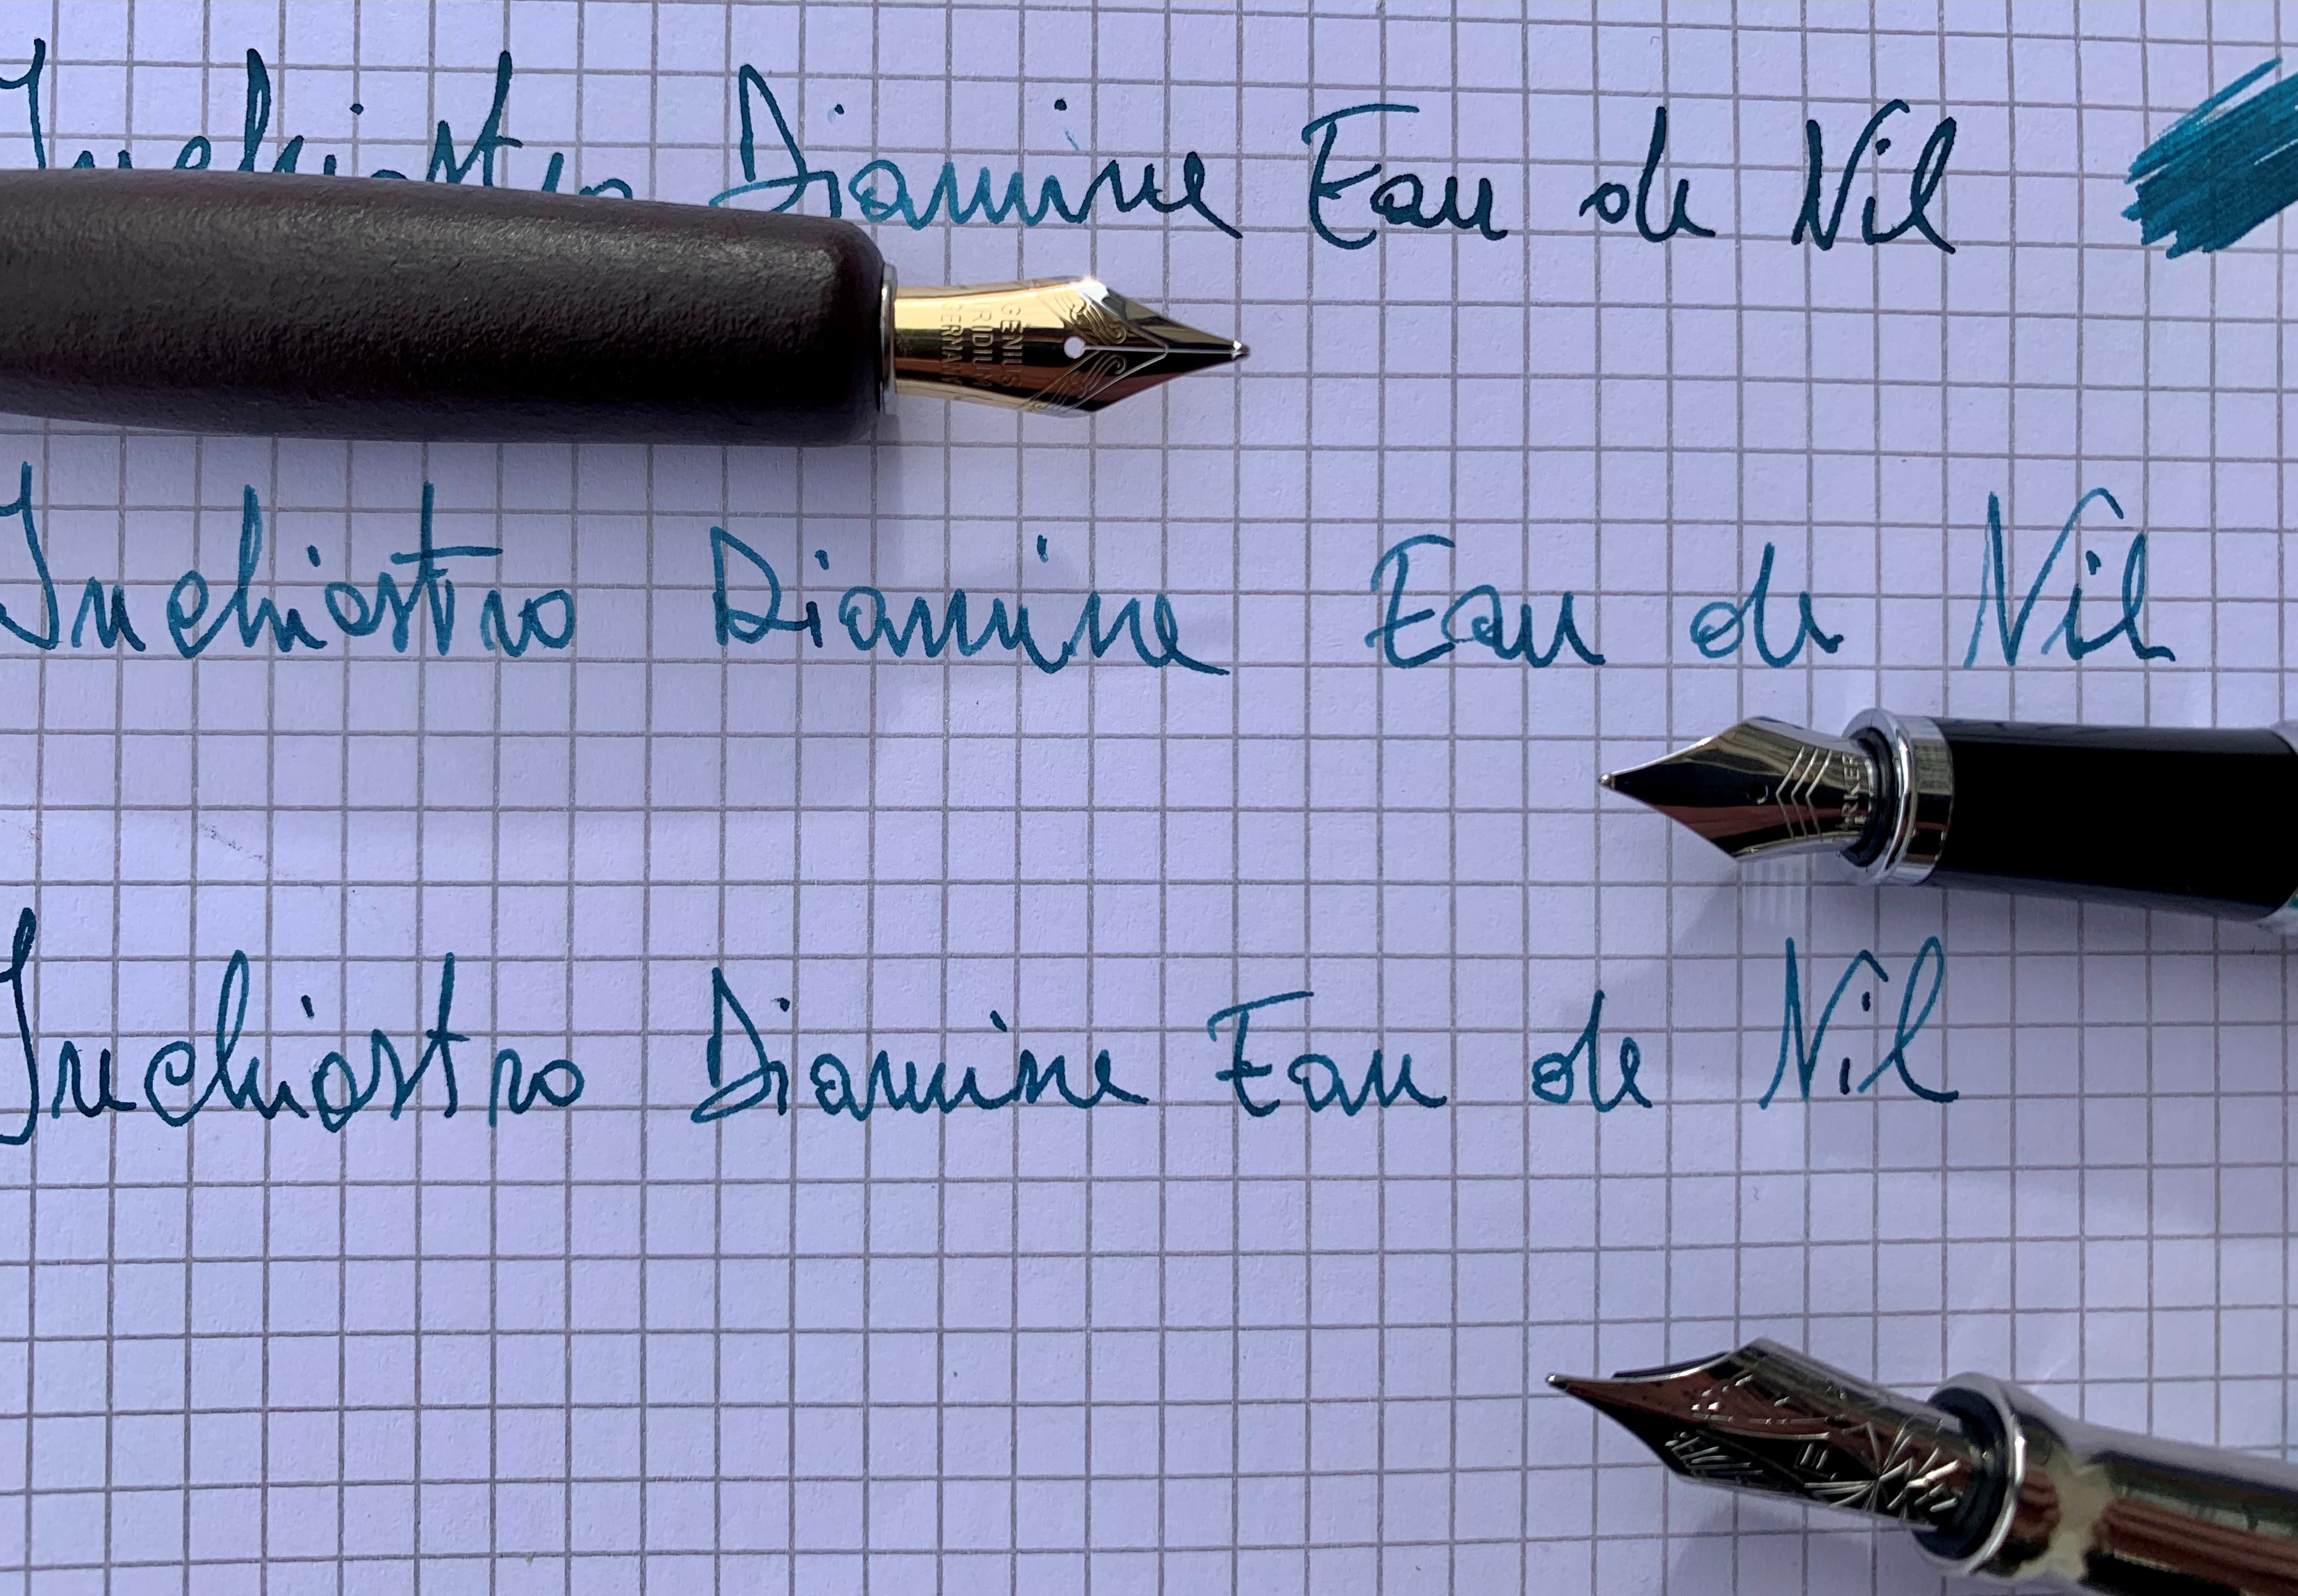 Inchiostro Diamine Eau de Nil
GÉNIUS
IRIDIUM
GERMANY
Inchiostro Diamine Eau de Nil
PARKER
Inchiostro Diamine Eau de Nil